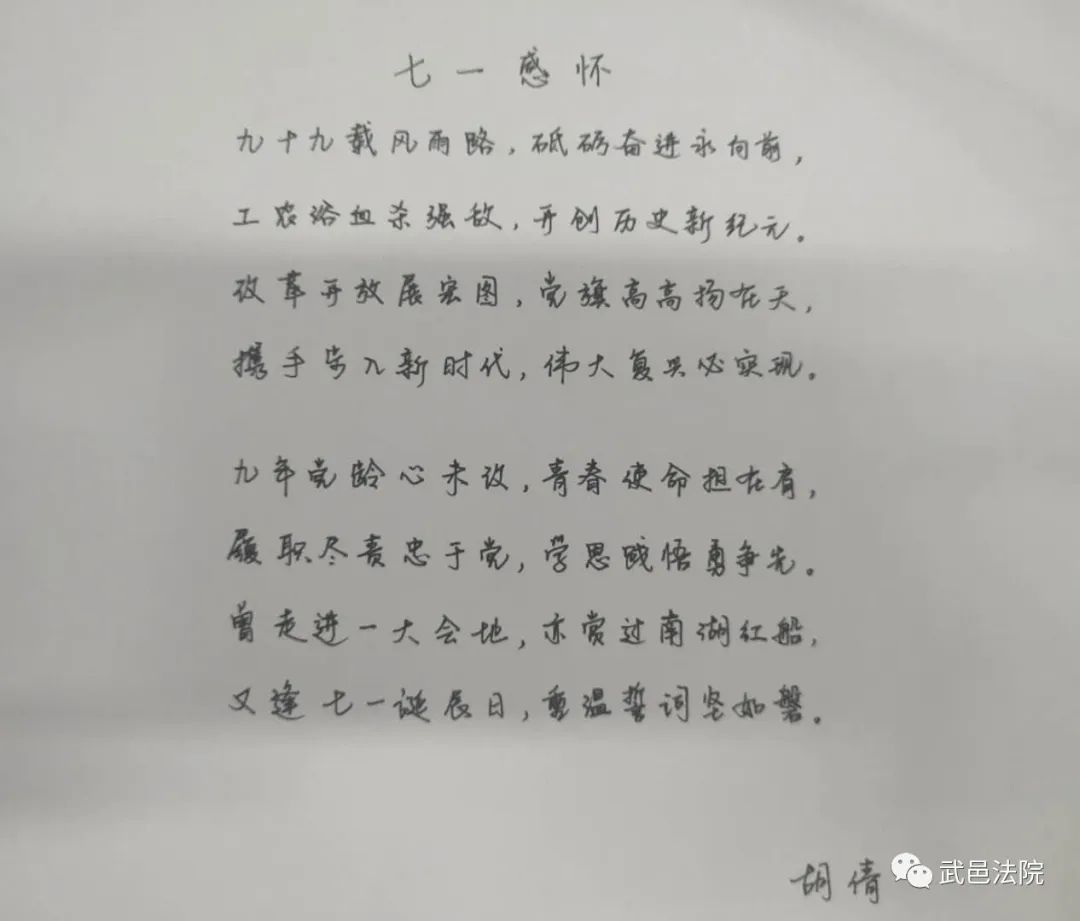 七一感怀
九十九载风雨路，砥砺奋进永向前，
工农浴血杀强敌，开创历史新纪元。
改革开放展宏图，党旗高高扬在天，
携手步入新时代，伟大复兴必实现。
九年党龄心未改，青春使命担在肩，
履职尽责忠于党，学思践悟勇争先。
曾走进一大会地，亦赏过南湖红船，
又逢七一诞辰日，重温誓词坚如磐。
胡倩
武邑法院